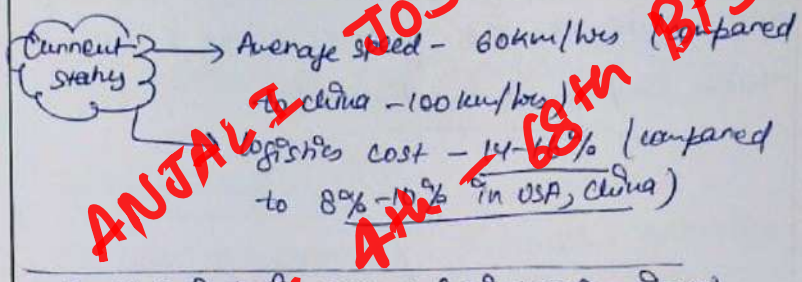 Current → Average speed - 60km/hrs (compared
status
to China - 100 km/hrs)
→ logistics cost - 14-16% (compared
to 8%-10% in USA, China)
ANJALI JOS
4th - 68th BPS